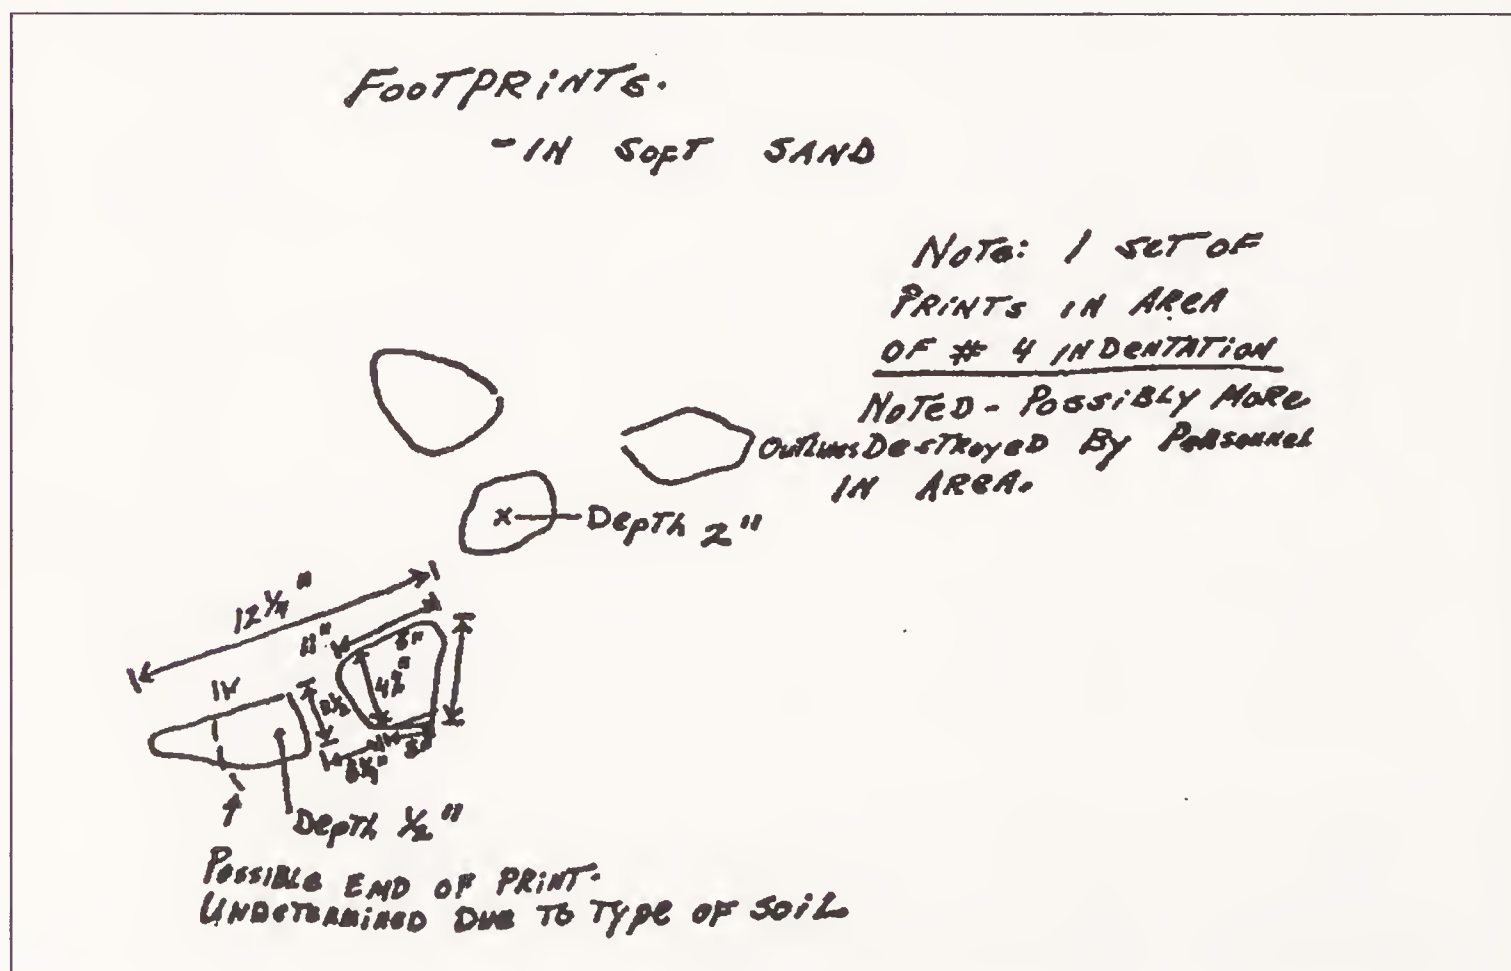 FOOTPRINTS.
- IN SOFT SAND
NOTE: 1 SET OF
PRINTS IN AREA
OF # 4 INDENTATION
NOTED - POSSIBLY MORE
OUTLINES DESTROYED BY PERSONNEL
IN AREA.
DEPTH 2"
12 1/4"
11"
5"
4 1/2"
DEPTH 1/2"
POSSIBLE END OF PRINT.
UNDETERMINED DUE TO TYPE OF SOIL